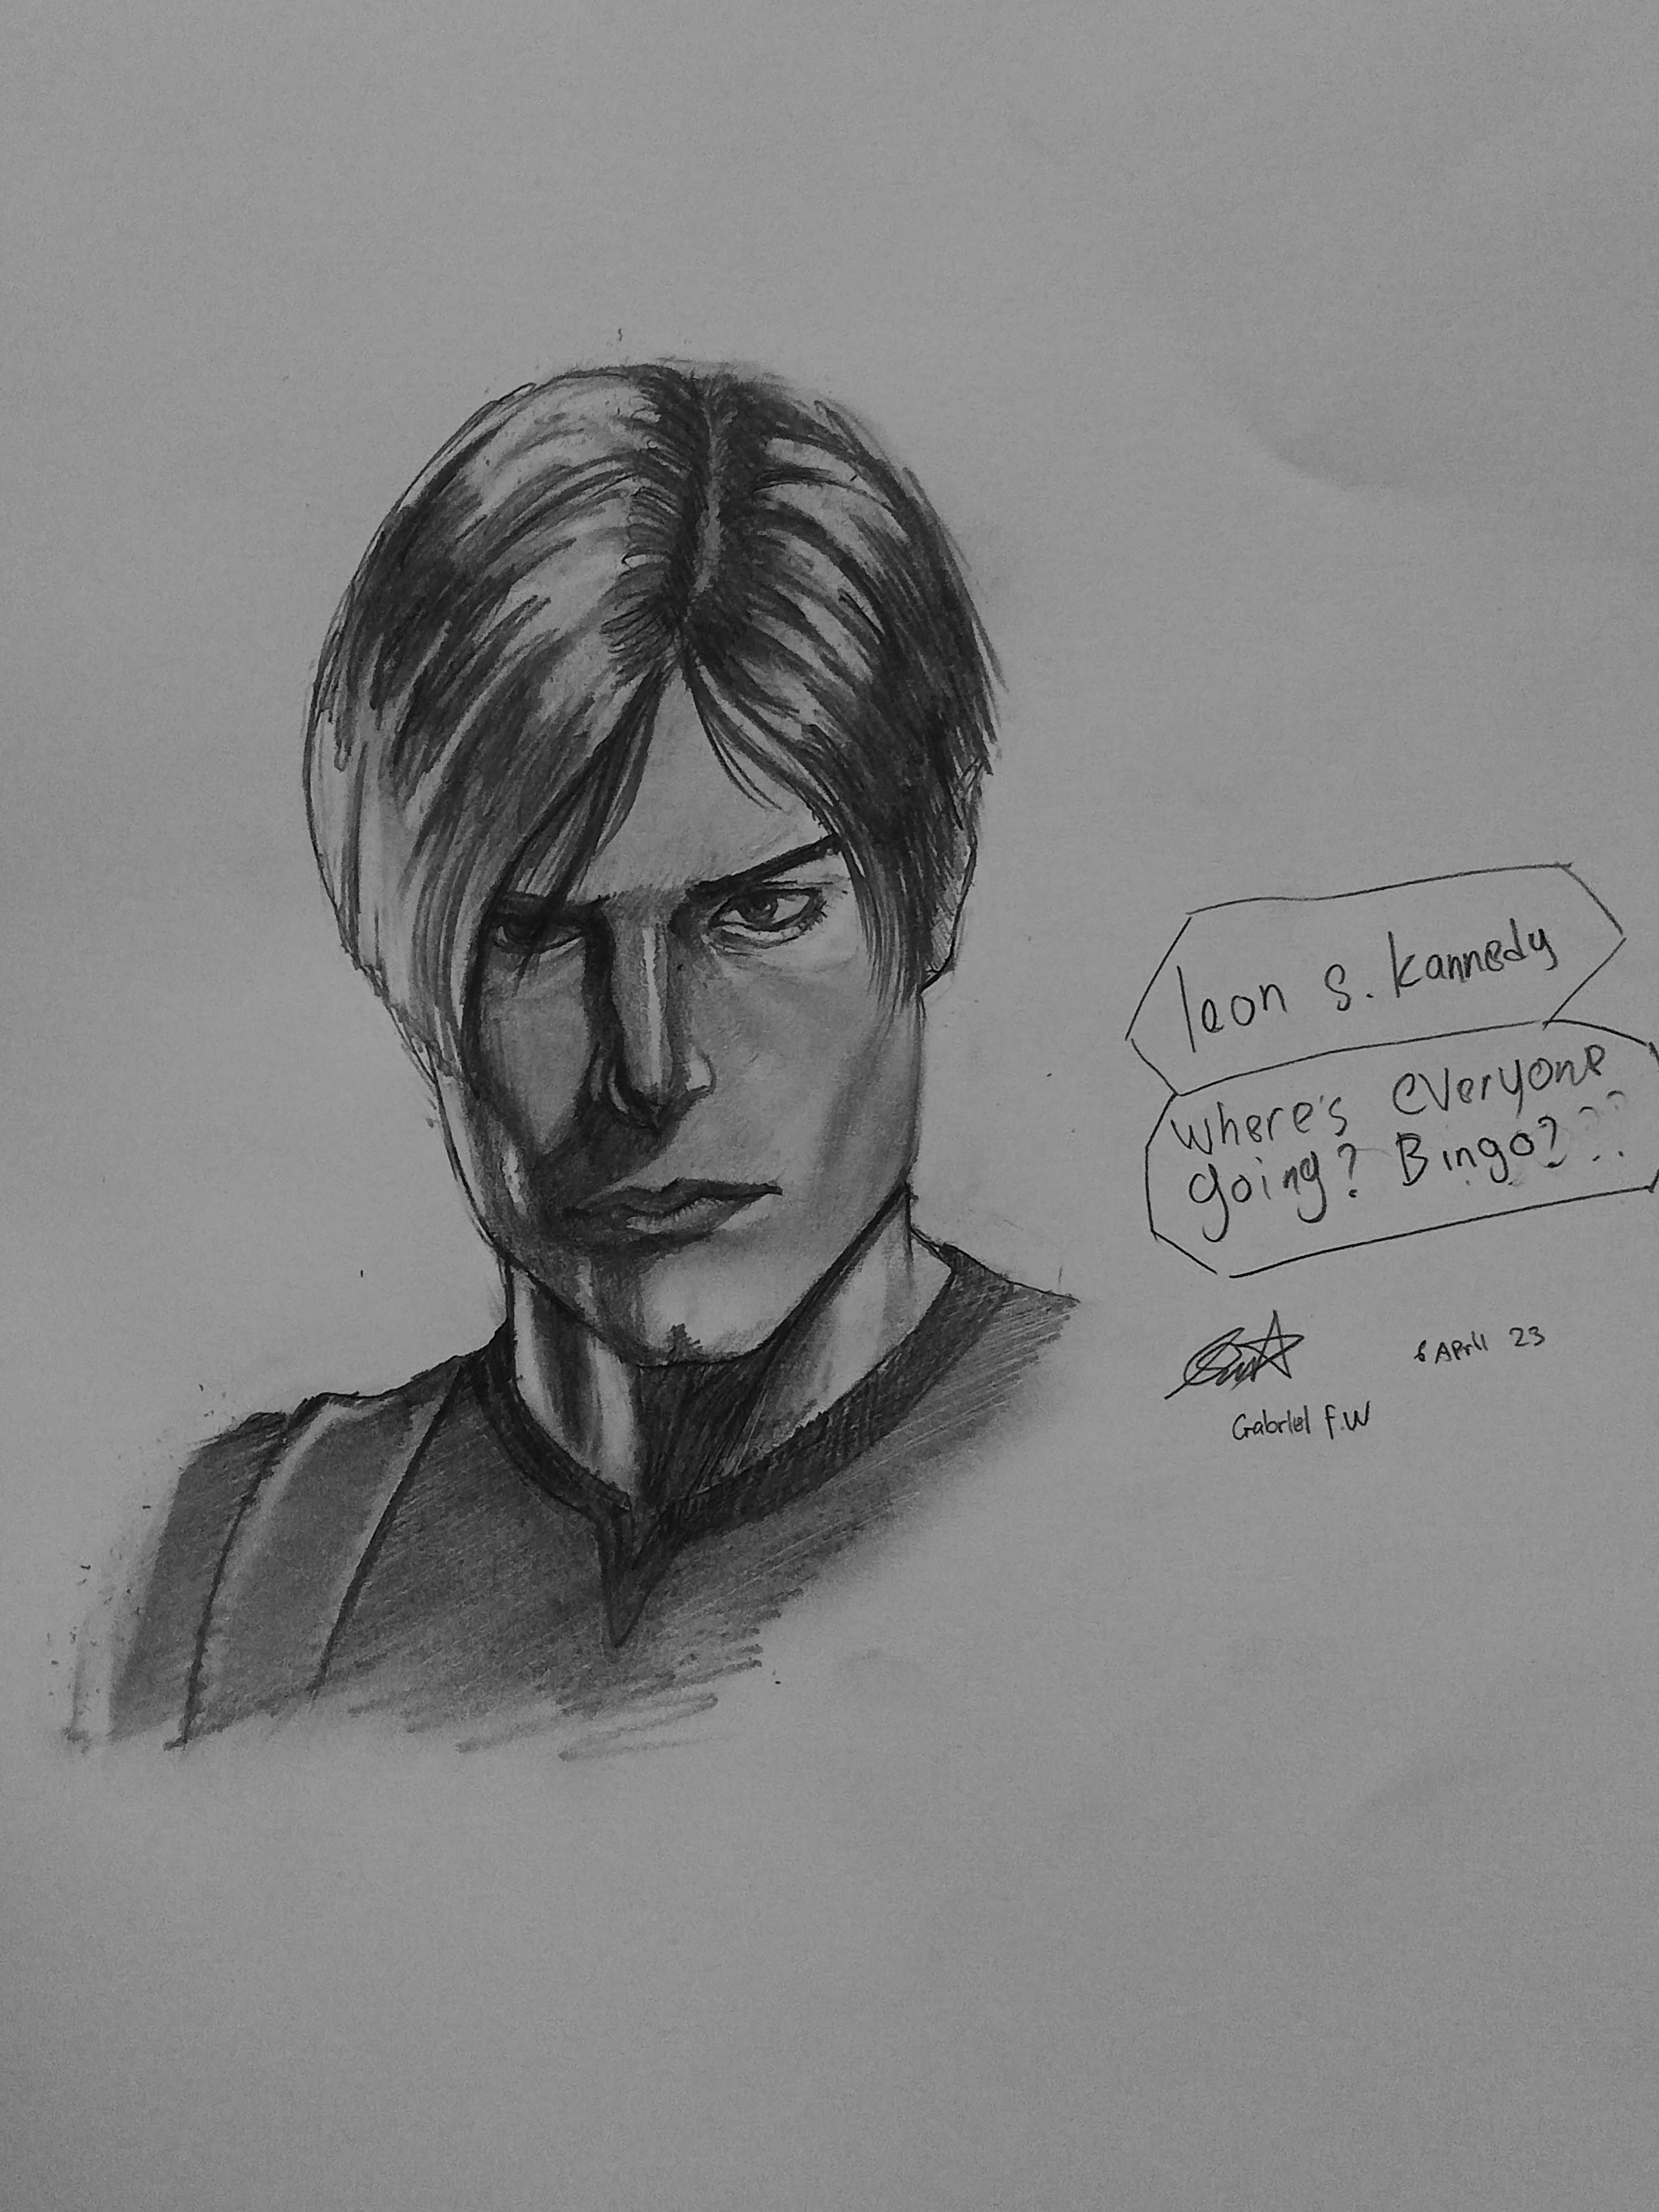 leon s. kannedy
where's everyone
going? Bingo???
6 April 23
Gabriel F.W